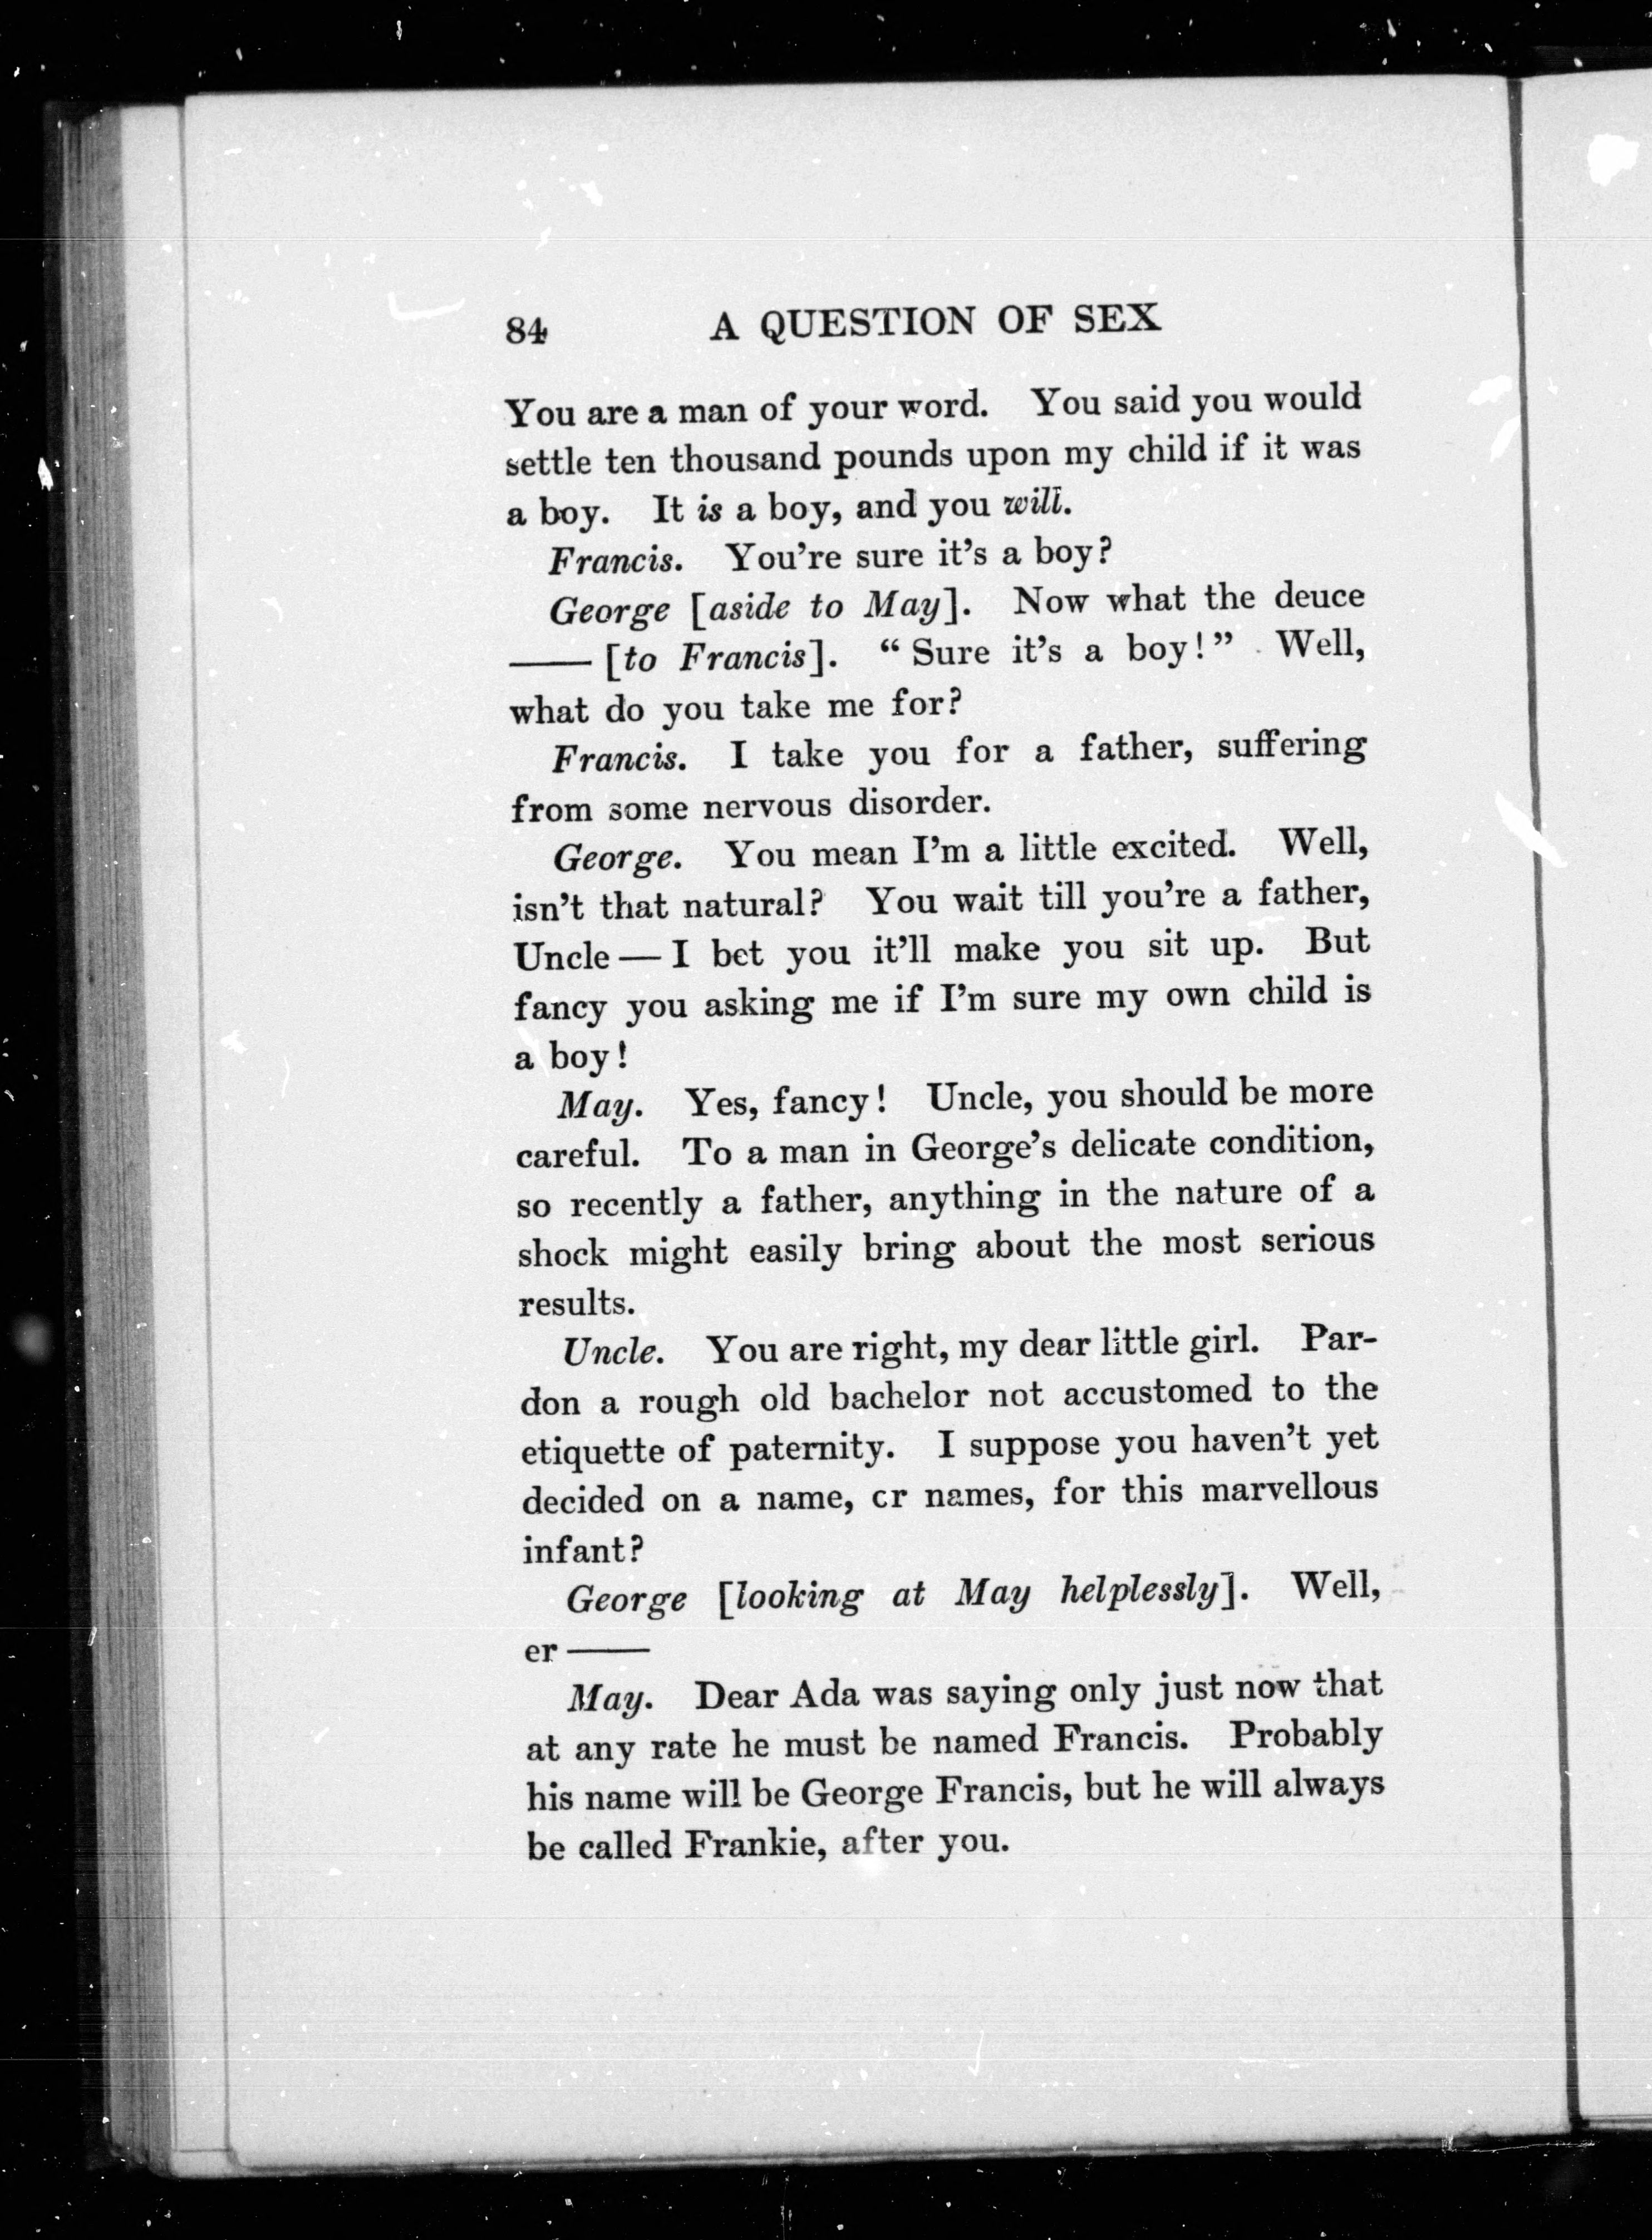 84 A QUESTION OF SEX
You are a man of your word. You said you would
settle ten thousand pounds upon my child if it was
a boy. It is a boy, and you will.
Francis. You're sure it's a boy?
George [aside to May]. Now what the deuce
—— [to Francis]. “Sure it's a boy!” Well,
what do you take me for?
Francis. I take you for a father, suffering
from some nervous disorder.
George. You mean I'm a little excited. Well,
isn't that natural? You wait till you're a father,
Uncle — I bet you it'll make you sit up. But
fancy you asking me if I'm sure my own child is
a boy!
May. Yes, fancy! Uncle, you should be more
careful. To a man in George's delicate condition,
so recently a father, anything in the nature of a
shock might easily bring about the most serious
results.
Uncle. You are right, my dear little girl. Par-
don a rough old bachelor not accustomed to the
etiquette of paternity. I suppose you haven't yet
decided on a name, or names, for this marvellous
infant?
George [looking at May helplessly]. Well,
er ——
May. Dear Ada was saying only just now that
at any rate he must be named Francis. Probably
his name will be George Francis, but he will always
be called Frankie, after you.